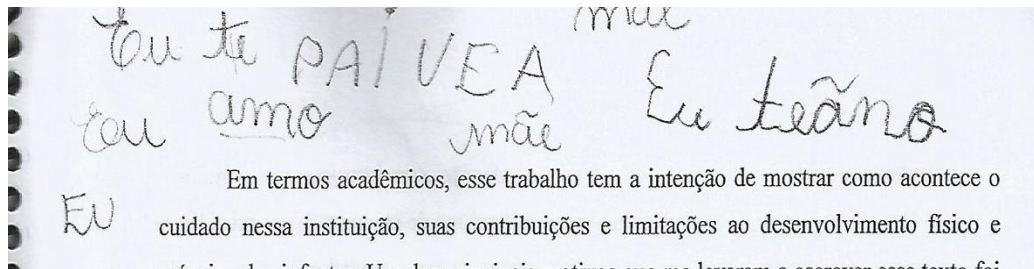 mãe
Eu te PAI VEA
Eu amo mãe Eu teãno
Em termos acadêmicos, esse trabalho tem a intenção de mostrar como acontece o
EU cuidado nessa instituição, suas contribuições e limitações ao desenvolvimento físico e